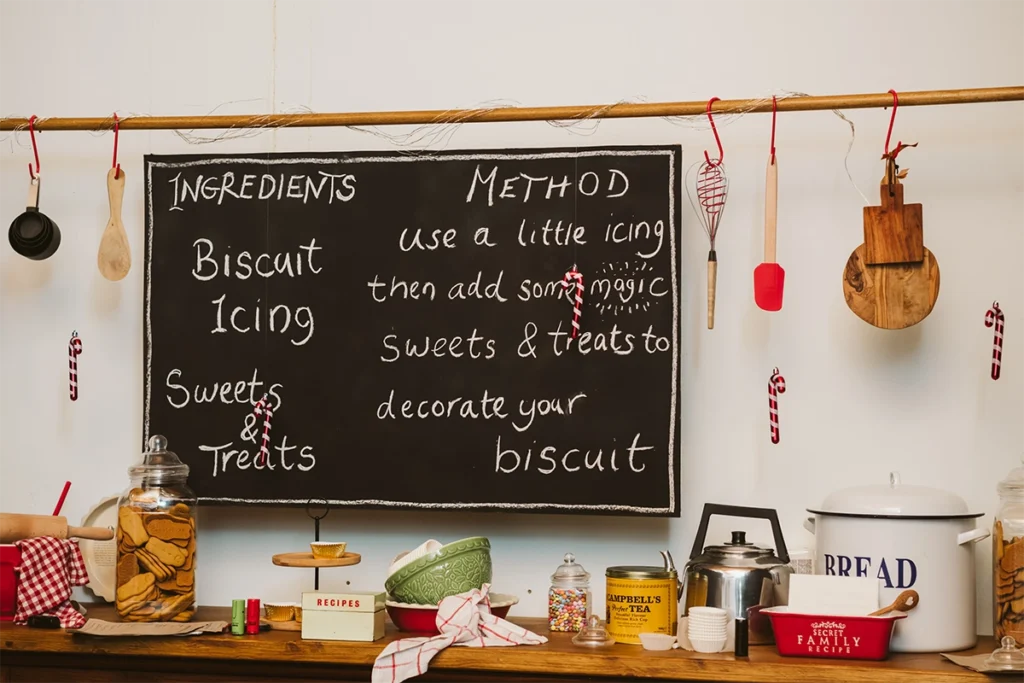 INGREDIENTS
Biscuit
Icing
Sweets
&
Treats
METHOD
use a little icing
then add some magic
Sweets & treats to
decorate your
biscuit
RECIPES
CAMPBELL'S
Perfect TEA
BREAD
SECRET
FAMILY
RECIPE